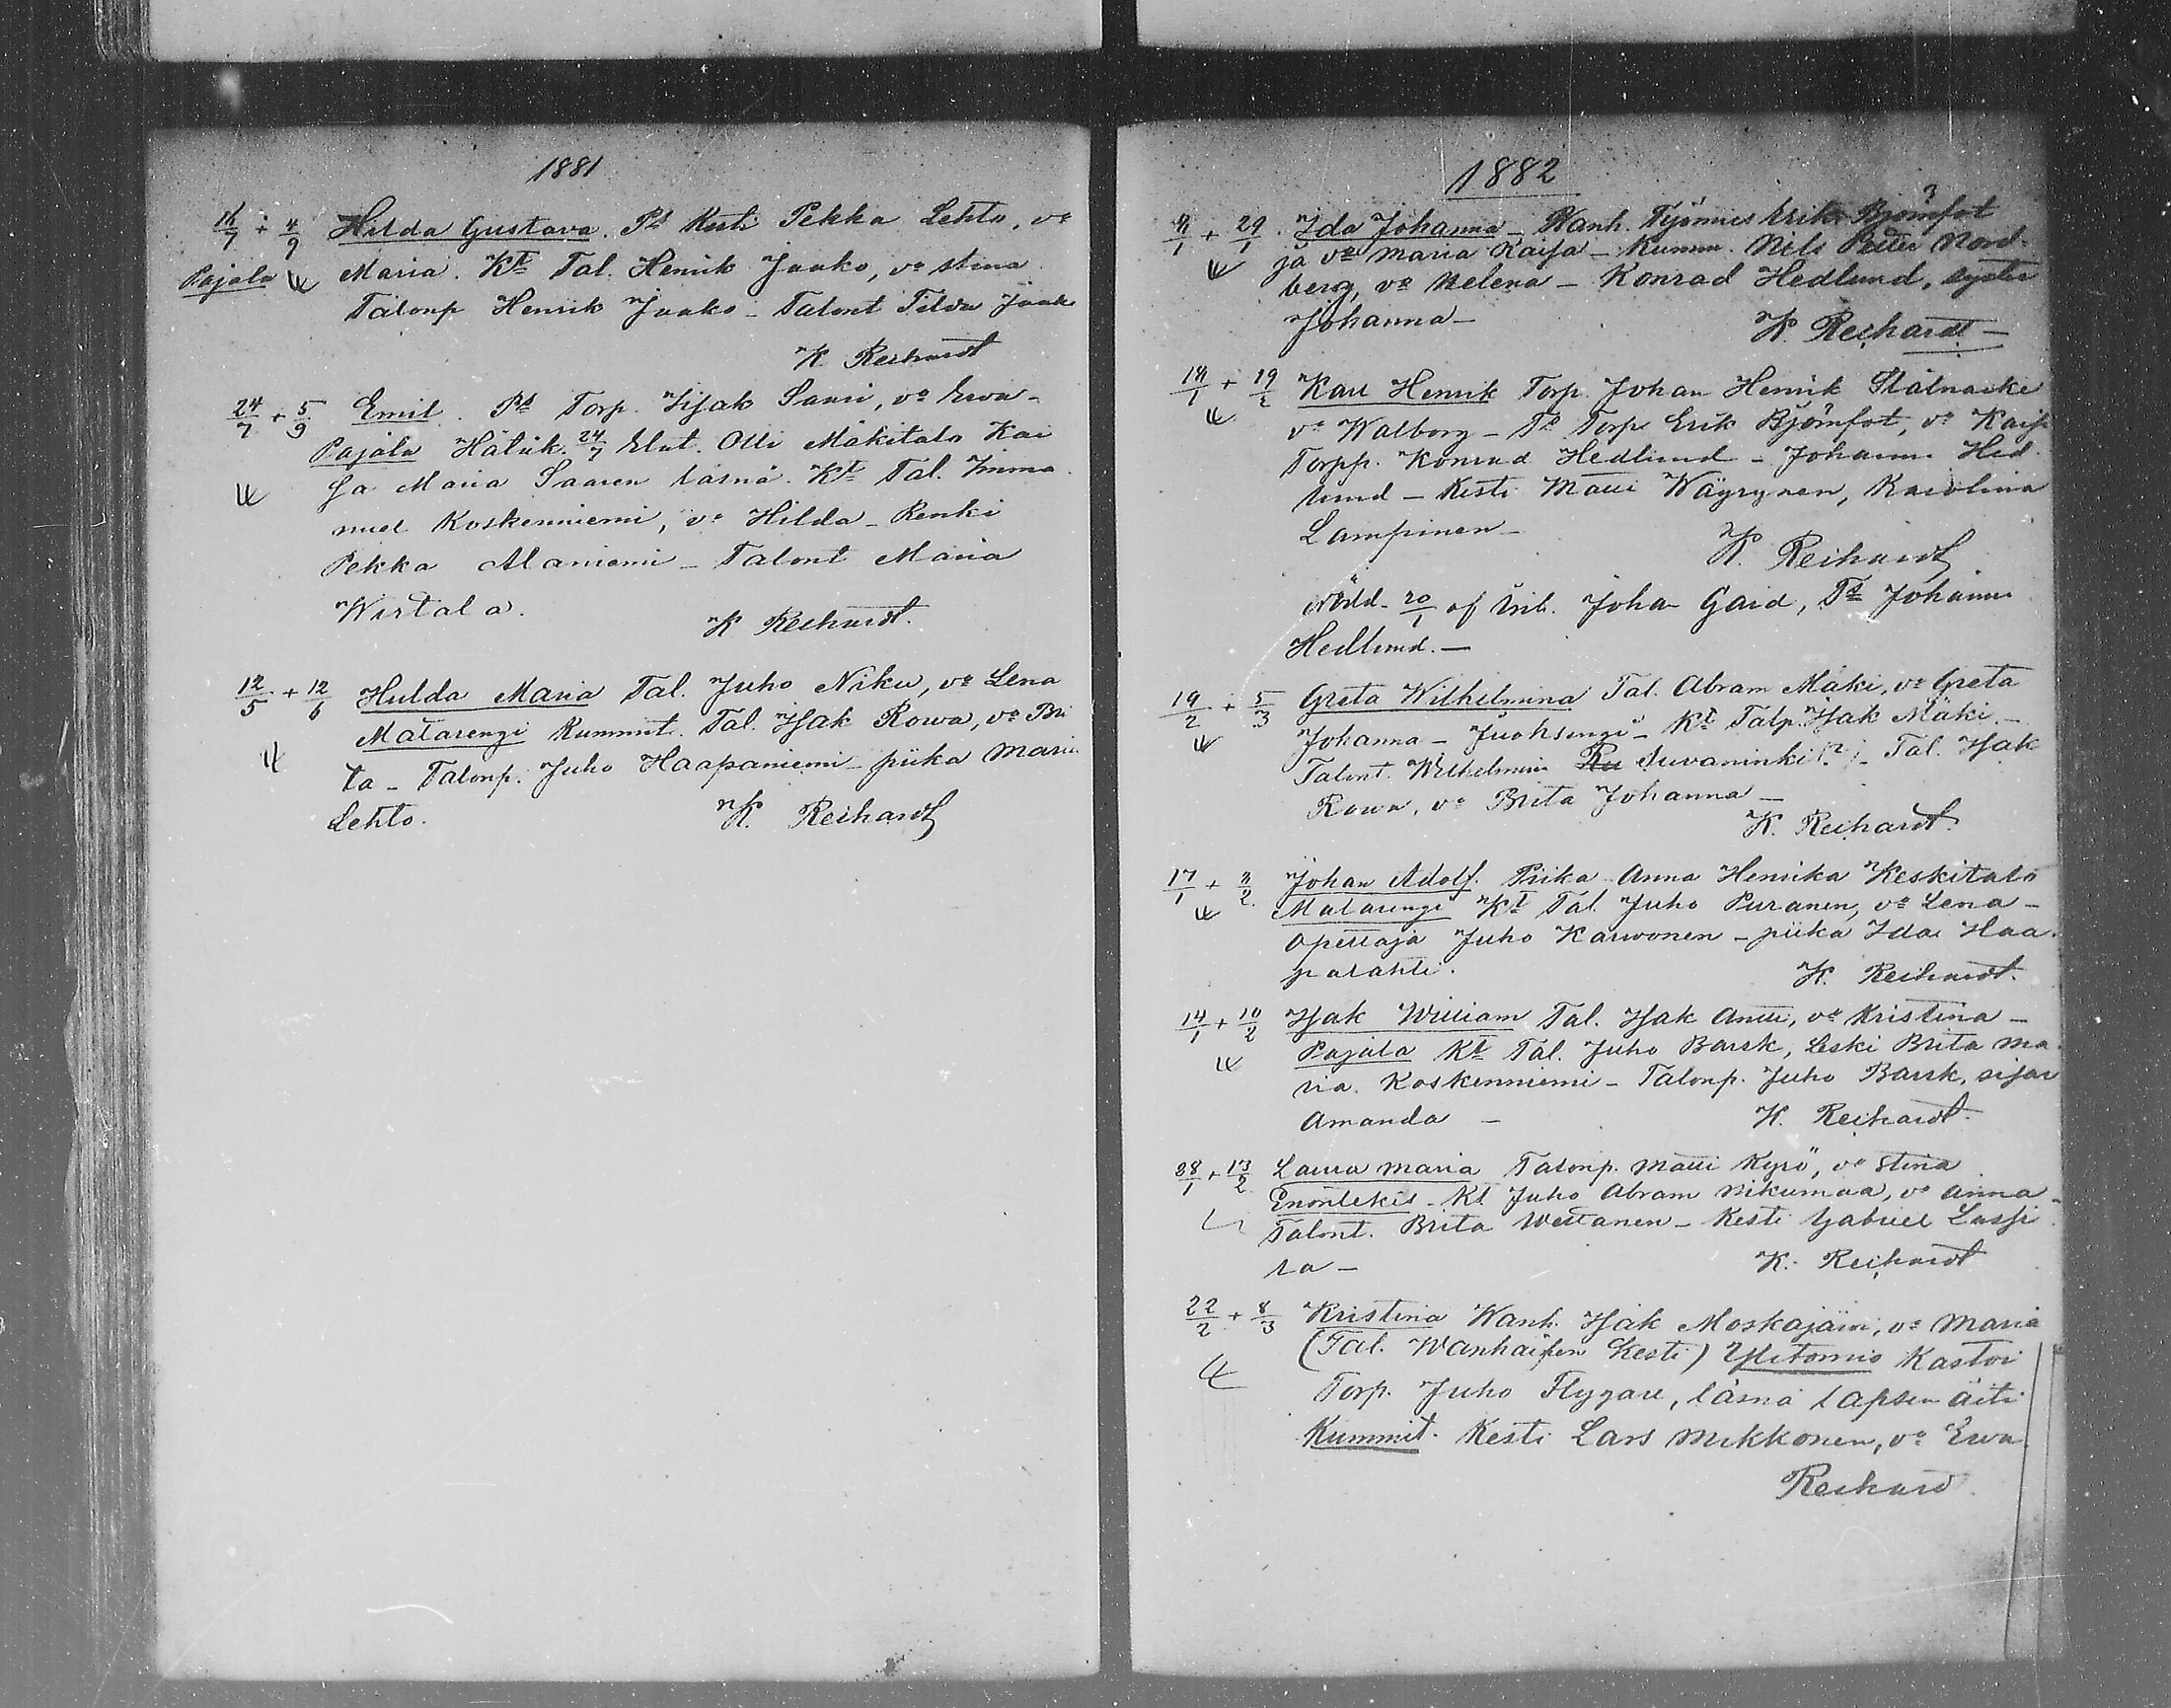 1881
16/7 + 4/9 Hilda Gustava. Pt Kesti Pekka Lehto, vo
Pajala Maria. Kt Tal. Henrik Jaako, vo Stina
Talonp Henrik Jaako - Talont Tilda Jaako
K. Reihardt
24/7 + 5/9 Emil. Pt Torp. Iisak Sauri, vo Ewa -
Pajala Hätäk. 24/7 Olli Mäkitalo Kai
sa Maria Saaren läsnä. Kt Tal. Imma
nuel Koskenniemi, vo Hilda - Renki
Pekka Alaniemi - Talont Maria
Wirtala.
K Reihardt.
12/5 + 12/6 Hulda Maria Tal. Juho Niku, vo Lena
Matarengi Kummit. Tal. Isak Rowa, vo Bri
ta - Talonp. Juho Haapaniemi - piika Maria
Lehto.
K. Reihardt
1882
3
+ 29/1 Ida Johanna - Wanh. Työmies Erik Björnfot
ja vo Maria Kaisa - Kumm. Nils Petter Nord-
berg, vo Helena - Konrad Hedlund, syster
Johanna -
K. Reihardt -
18/1 + 19/2 Karl Henrik Torp. Johan Henrik Stålnacke
vo Walborg - Torp Erik Björnfot, vo Kaisa
Torpp. Konrad Hedlund - Johanna Hed-
lund - Kesti Matti Wäyrynen, Karolina
Lampinen -
K. Reihardt
Nödd. 20/1 af Johan Gard, Johanna
Hedlund. -
19/2 + 5/3 Greta Wilhelmina Tal. Abram Mäki, vo Greta
Johanna - Juoksengi - Kt Talp. Isak Mäki. -
Talont. Wilhelmina Juvaninki (?) - Tal. Isak
Rowa, vo Brita Johanna -
K. Reihardt.
17/1 + 2/2 Johan Adolf. Piika Anna Henrika Keskitalo
Matarengi Kt Tal. Juho Puranen, vo Lena -
Opettaja Juho Karwonen - piika Ida Haa-
palahti.
K. Reihardt.
14/1 + 10/2 Isak William Tal. Isak Antti, vo Kristina -
Pajala Kt Tal. Juho Barsk, Leski Brita Ma-
ria Koskenniemi - Talonp. Juho Barsk, sisar
Amanda -
K. Reihardt.
28/1 + 13/2 Laura Maria Talonp. Matti Kyrö, vo Stina
Enontekis - Kt Juho Abram Nikumaa, vo Anna -
Talont. Brita Wettanen - Kesti Gabriel Lassi
la -
K. Reihardt
22/2 + 8/3 Kristina Wanh. Isak Moskajärvi, vo Maria
(Tal. Wanhaisen Kesti) Ylitornio Kastoi
Torp. Juho Flygare, läsnä lapsen äiti
Kummit. Kesti Lars Mikkonen, vo Ewa
Reihard